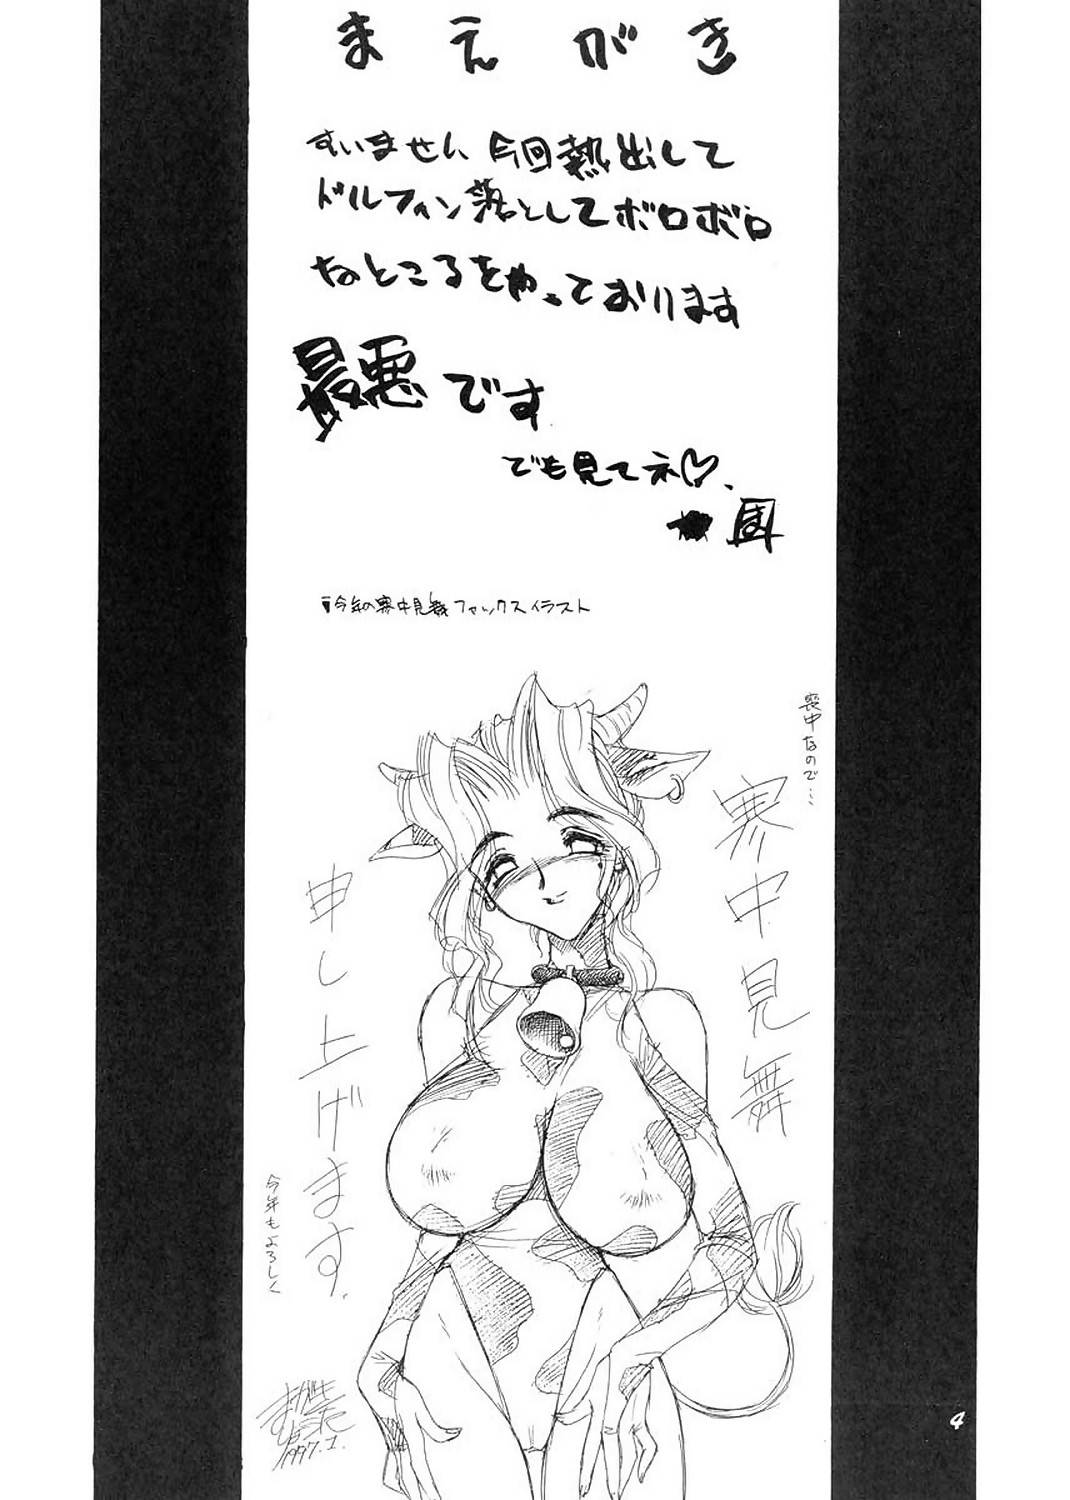 まえがき
すいません 今回熱出して
ドルフィン落としてボロボロ
なところをやっております
最悪です
でも見てネ♡、
今年の寒中見舞ファックスイラスト
喪中なので…
寒中見舞
申し上げます。
今年もよろしく
1997.1.
4